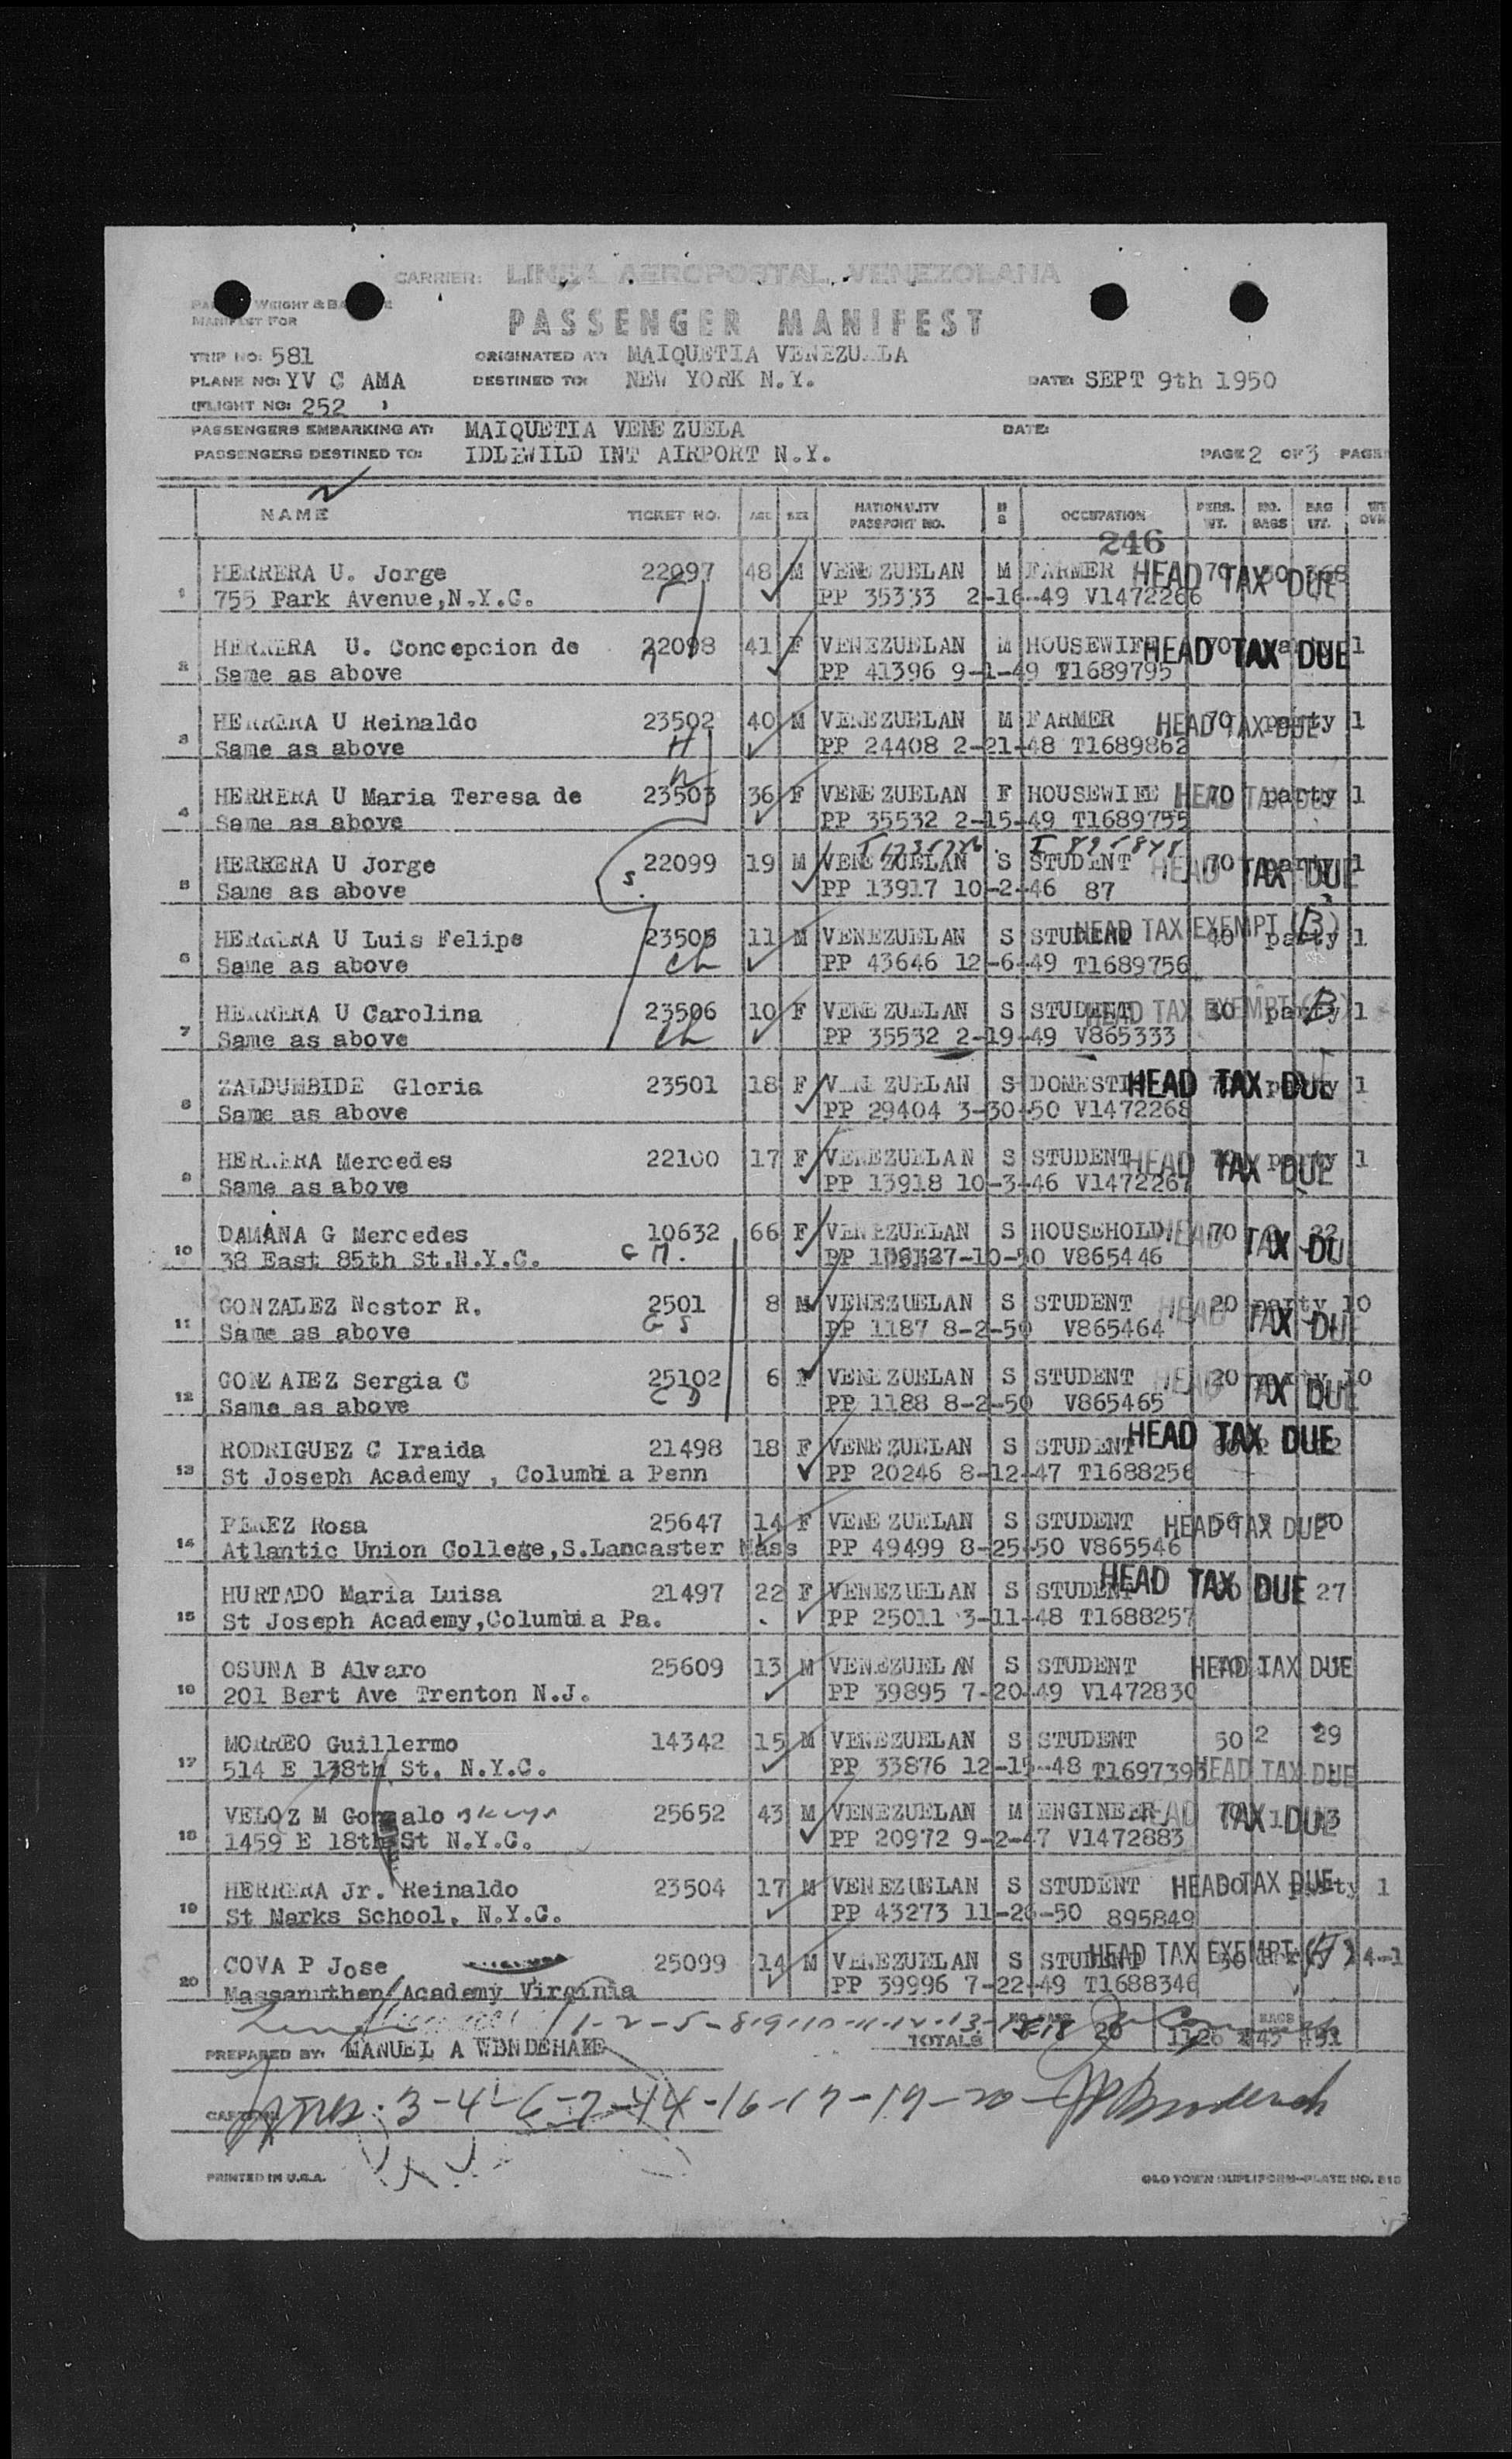 CARRIER: LINEA AEROPOSTAL VENEZOLANA
WEIGHT &
MANIFEST FOR
PASSENGER MANIFEST
TRIP NO: 581 ORIGINATED AT: MAIQUETIA VENEZUELA
PLANE NO: YV C AMA DESTINED TO: NEW YORK N.Y. DATE: SEPT 9th 1950
(FLIGHT NO: 252 )
PASSENGERS EMBARKING AT: MAIQUETIA VENEZUELA DATE:
PASSENGERS DESTINED TO: IDLEWILD INT AIRPORT N.Y. PAGE 2 OF 3 PAGE
NAME TICKET NO. AGE SEX NATIONALITY PASSPORT NO. M S OCCUPATION PERS. WT. NO. BAGS BAG WT.
246
1 HERRERA U. Jorge 22097 48 M VENEZUELAN M FARMER 70 HEAD TAX DUE
755 Park Avenue, N.Y.C. PP 35333 2-16-49 V1472266
2 HERRERA U. Concepcion de 22098 41 F VENEZUELAN M HOUSEWIFE 70 HEAD TAX DUE 1
Same as above PP 41396 9-1-49 T1689795
3 HERRERA U Reinaldo 23502 40 M VENEZUELAN M FARMER 70 party 1 HEAD TAX DUE
Same as above H PP 24408 2-21-48 T1689862
4 HERRERA U Maria Teresa de 23503 36 F VENEZUELAN F HOUSEWIFE 70 party 1 HEAD TAX DUE
Same as above PP 35532 2-15-49 T1689755
5 HERRERA U Jorge 22099 19 M VENEZUELAN S STUDENT 70 party 1 HEAD TAX DUE
Same as above S. PP 13917 10-2-46 87
6 HERRERA U Luis Felipe 23505 11 M VENEZUELAN S STUDENT 40 party 1 HEAD TAX EXEMPT (B)
Same as above Ch PP 43646 12-6-49 T1689756
7 HERRERA U Carolina 23506 10 F VENEZUELAN S STUDENT party 1 HEAD TAX EXEMPT (B)
Same as above Ch PP 35532 2-19-49 V865333
8 ZALDUMBIDE Gloria 23501 18 F VENEZUELAN S DOMESTIC 70 party 1 HEAD TAX DUE
Same as above PP 29404 3-30-50 V1472268
9 HERRERA Mercedes 22100 17 F VENEZUELAN S STUDENT 70 party 1 HEAD TAX DUE
Same as above PP 13918 10-3-46 V1472267
10 DAMANA G Mercedes 10632 66 F VENEZUELAN S HOUSEHOLD 70 HEAD TAX DU
38 East 85th St.N.Y.C. G M. PP 7-10-50 V865446
11 GONZALEZ Nestor R. 2501 8 M VENEZUELAN S STUDENT 20 party 10 HEAD TAX DUE
Same as above G S PP 1187 8-2-50 V865464
12 GONZALEZ Sergia C 25102 6 F VENEZUELAN S STUDENT 20 party 10 HEAD TAX DUE
Same as above PP 1188 8-2-50 V865465
13 RODRIGUEZ C Iraida 21498 18 F VENEZUELAN S STUDENT HEAD TAX DUE
St Joseph Academy , Columbia Penn PP 20246 8-12-47 T1688256
14 PEREZ Rosa 25647 14 F VENEZUELAN S STUDENT HEAD TAX DUE
Atlantic Union College,S.Lancaster Mass PP 49499 8-25-50 V865546
15 HURTADO Maria Luisa 21497 22 F VENEZUELAN S STUDENT HEAD TAX DUE 27
St Joseph Academy,Columbia Pa. PP 25011 3-11-48 T1688257
16 OSUNA B Alvaro 25609 13 M VENEZUELAN S STUDENT HEAD TAX DUE
201 Bert Ave Trenton N.J. PP 39895 7-20-49 V1472830
17 MORREO Guillermo 14342 15 M VENEZUELAN S STUDENT 50 2 29
514 E 138th St. N.Y.C. PP 33876 12-15-48 T1697393 HEAD TAX DUE
18 VELOZ M Gonzalo 25652 43 M VENEZUELAN M ENGINEER HEAD TAX DUE
1459 E 18th St N.Y.C. PP 20972 9-2-47 V1472883
19 HERRERA Jr. Reinaldo 23504 17 M VENEZUELAN S STUDENT party 1 HEAD TAX DUE
St Marks School, N.Y.C. PP 43273 11-26-50 895849
20 COVA P Jose 25099 14 M VENEZUELAN S STUDENT HEAD TAX EXEMPT 4-1
Massanuthen Academy Virginia PP 39996 7-22-49 T1688346
1-2-5-8-9-10-11-12-13-15-18
TOTALS 20
PREPARED BY: MANUEL A WENDEHAKE
CAPTAIN: 3-4-6-7-14-16-17-19-20
PRINTED IN U.S.A. OLD TOWN DUPLIFORM-PLATE NO. 818